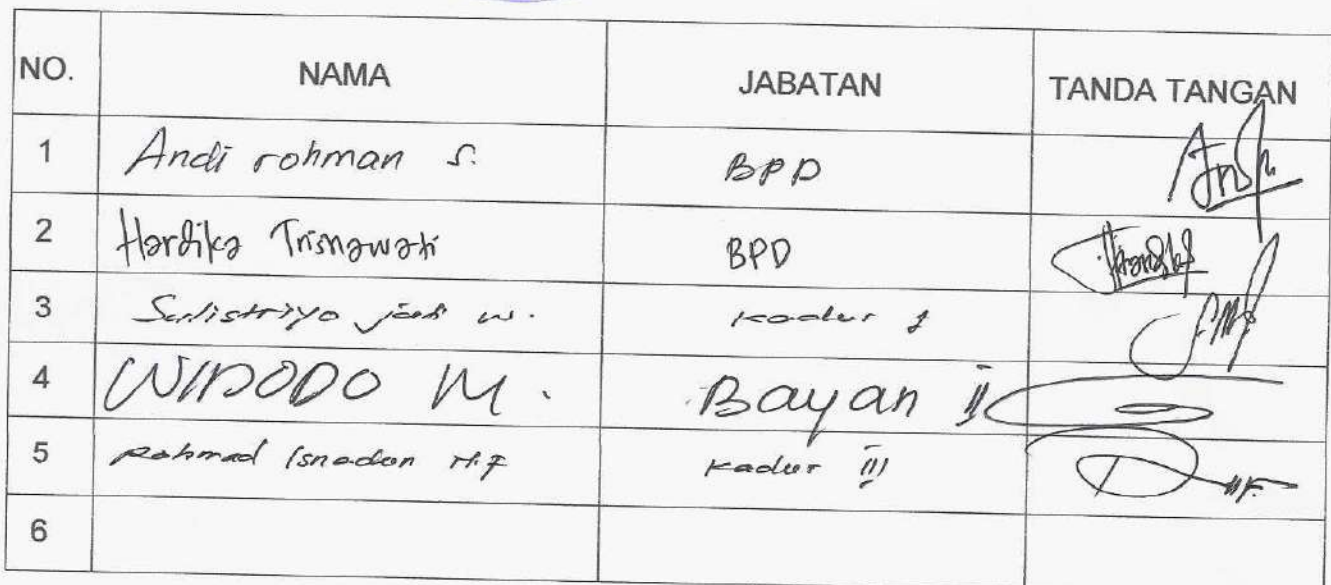 NO. NAMA JABATAN TANDA TANGAN
1 Andi rohman S. BPD
2 Hardika Trisnawati BPD
3 Sulistriyo w. Kadus I
4 WIDODO M. Bayan II
5 Rohmad Isnadun M.F Kadus III
6